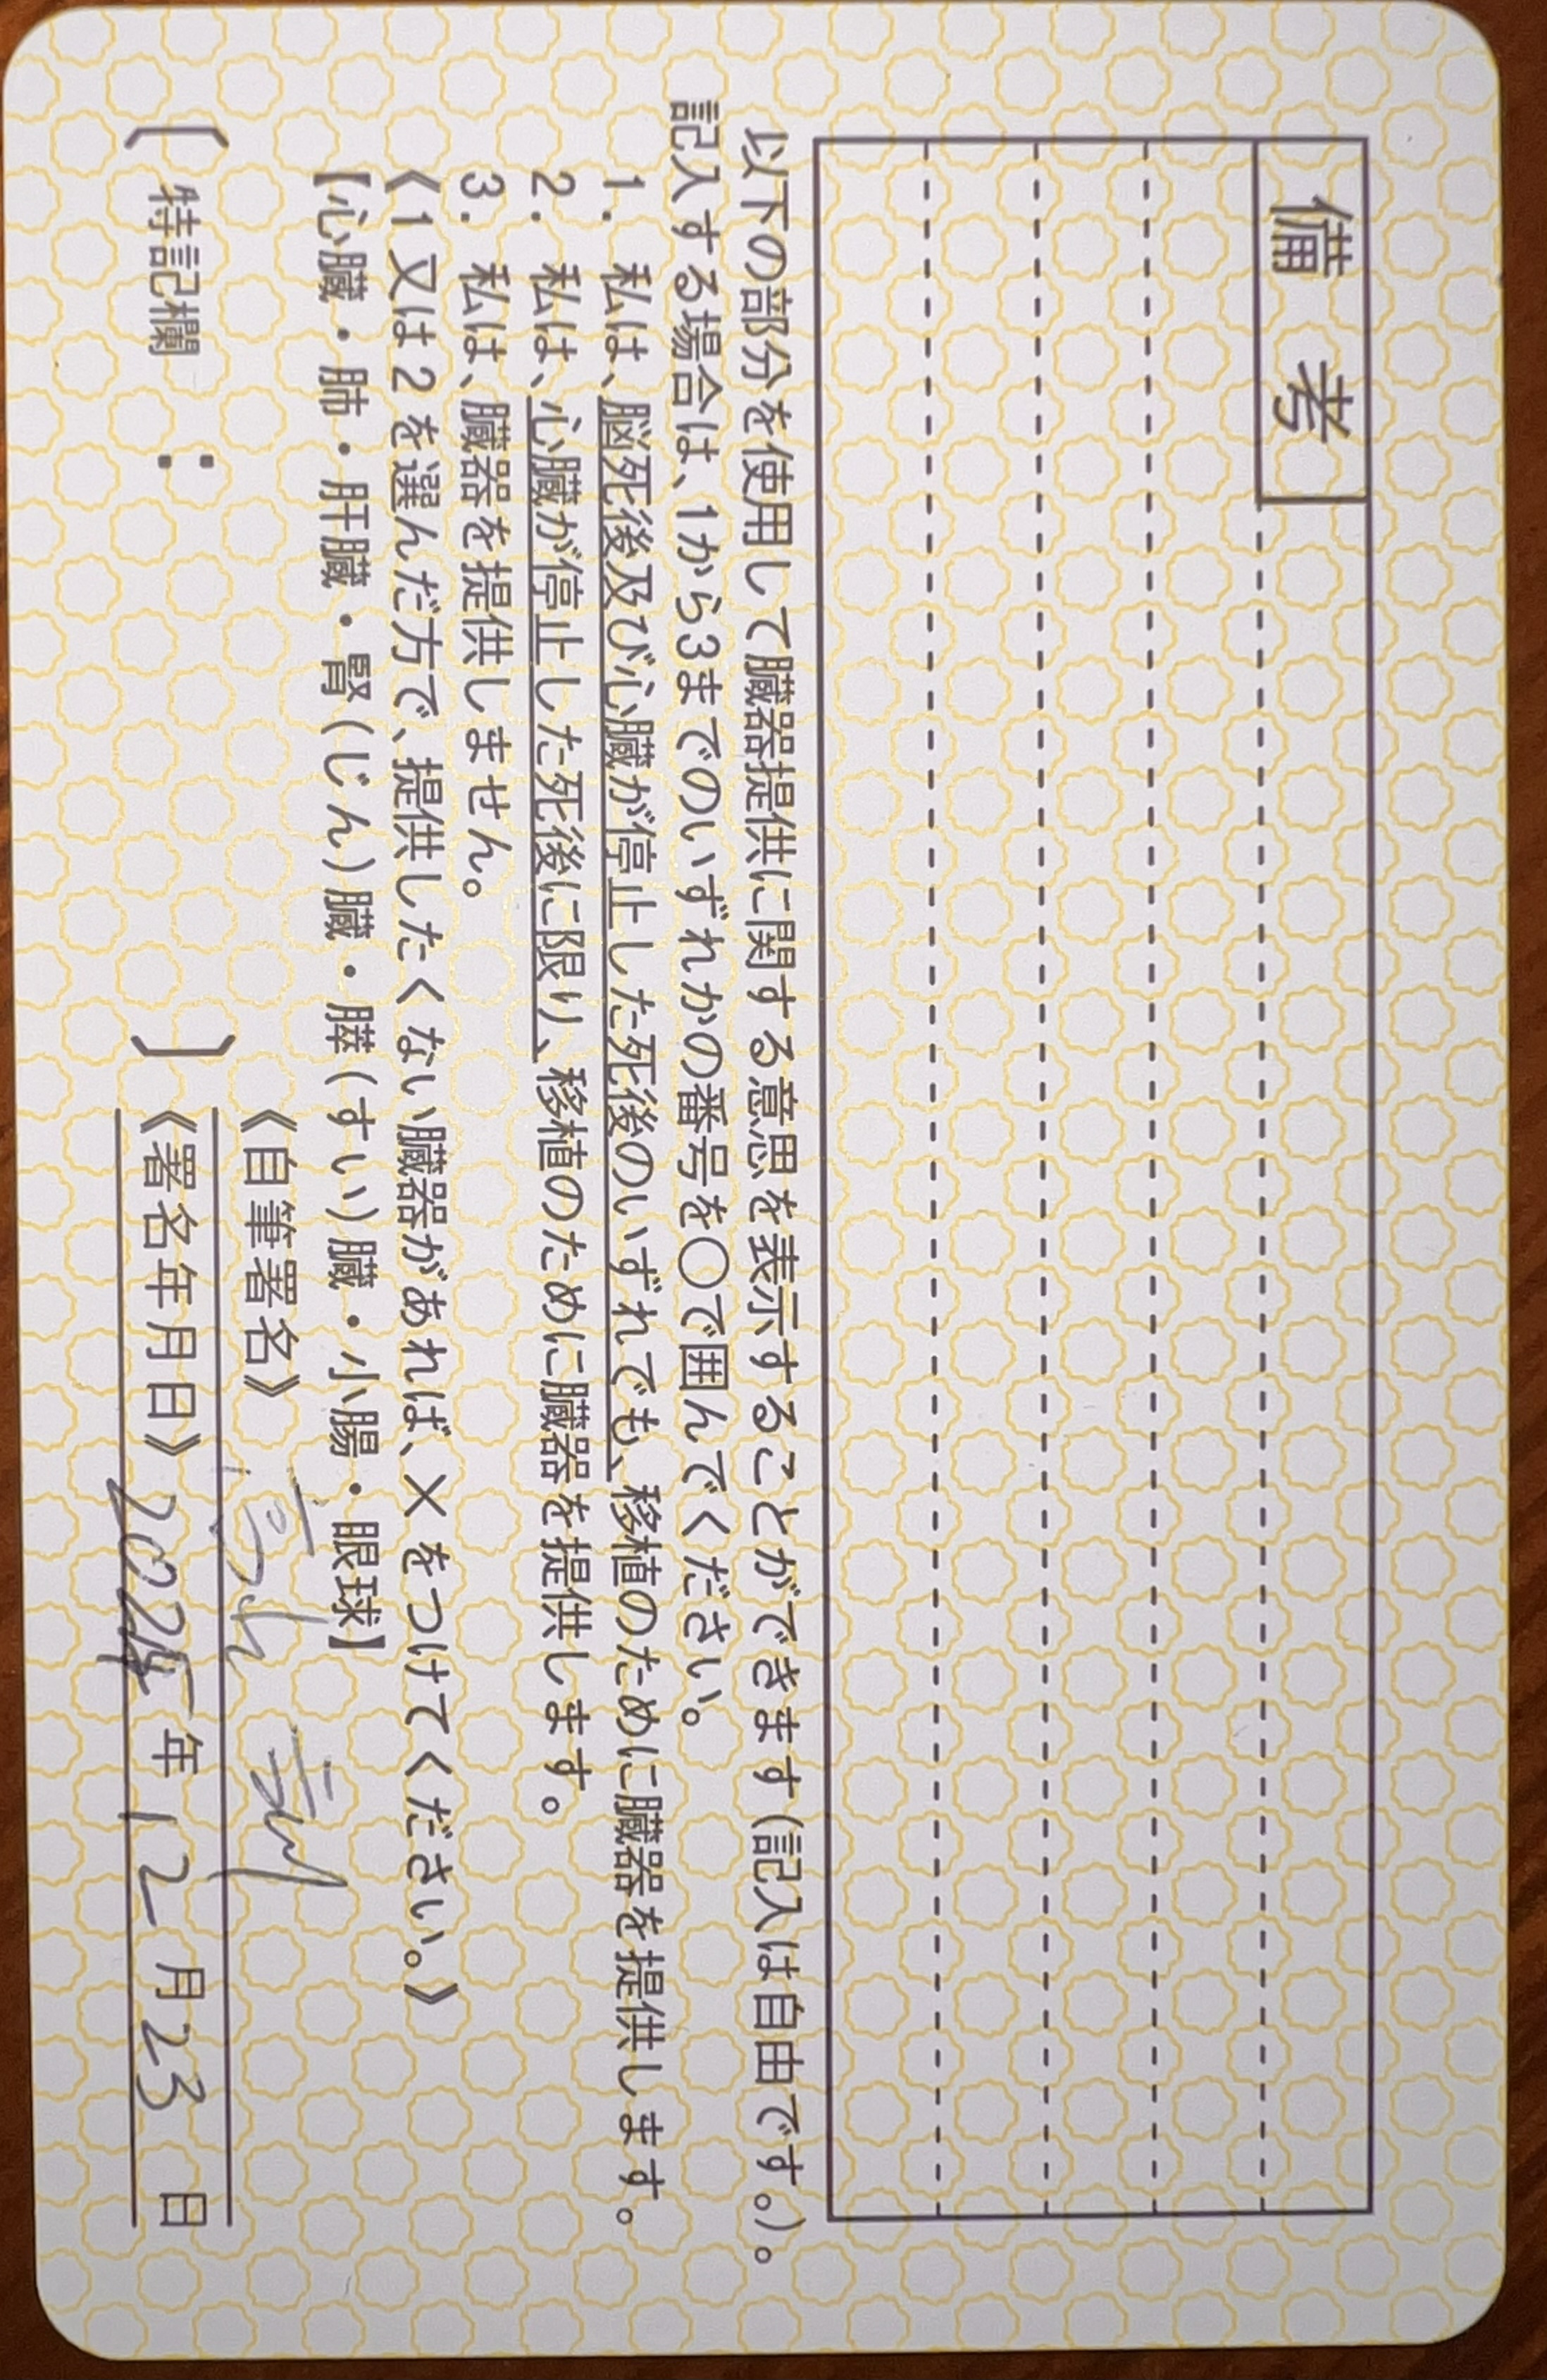 備考
以下の部分を使用して臓器提供に関する意思を表示することができます(記入は自由です。)。
記入する場合は、1から3までのいずれかの番号を〇で囲んでください。
1. 私は、脳死後及び心臓が停止した死後のいずれでも、移植のために臓器を提供します。
2. 私は、心臓が停止した死後に限り、移植のために臓器を提供します。
3. 私は、臓器を提供しません。
《1又は2を選んだ方で、提供したくない臓器があれば、×をつけてください。》
【心臓・肺・肝臓・腎(じん)臓・膵(すい)臓・小腸・眼球】
《自筆署名》
〔特記欄： 〕《署名年月日》2025年12月23日